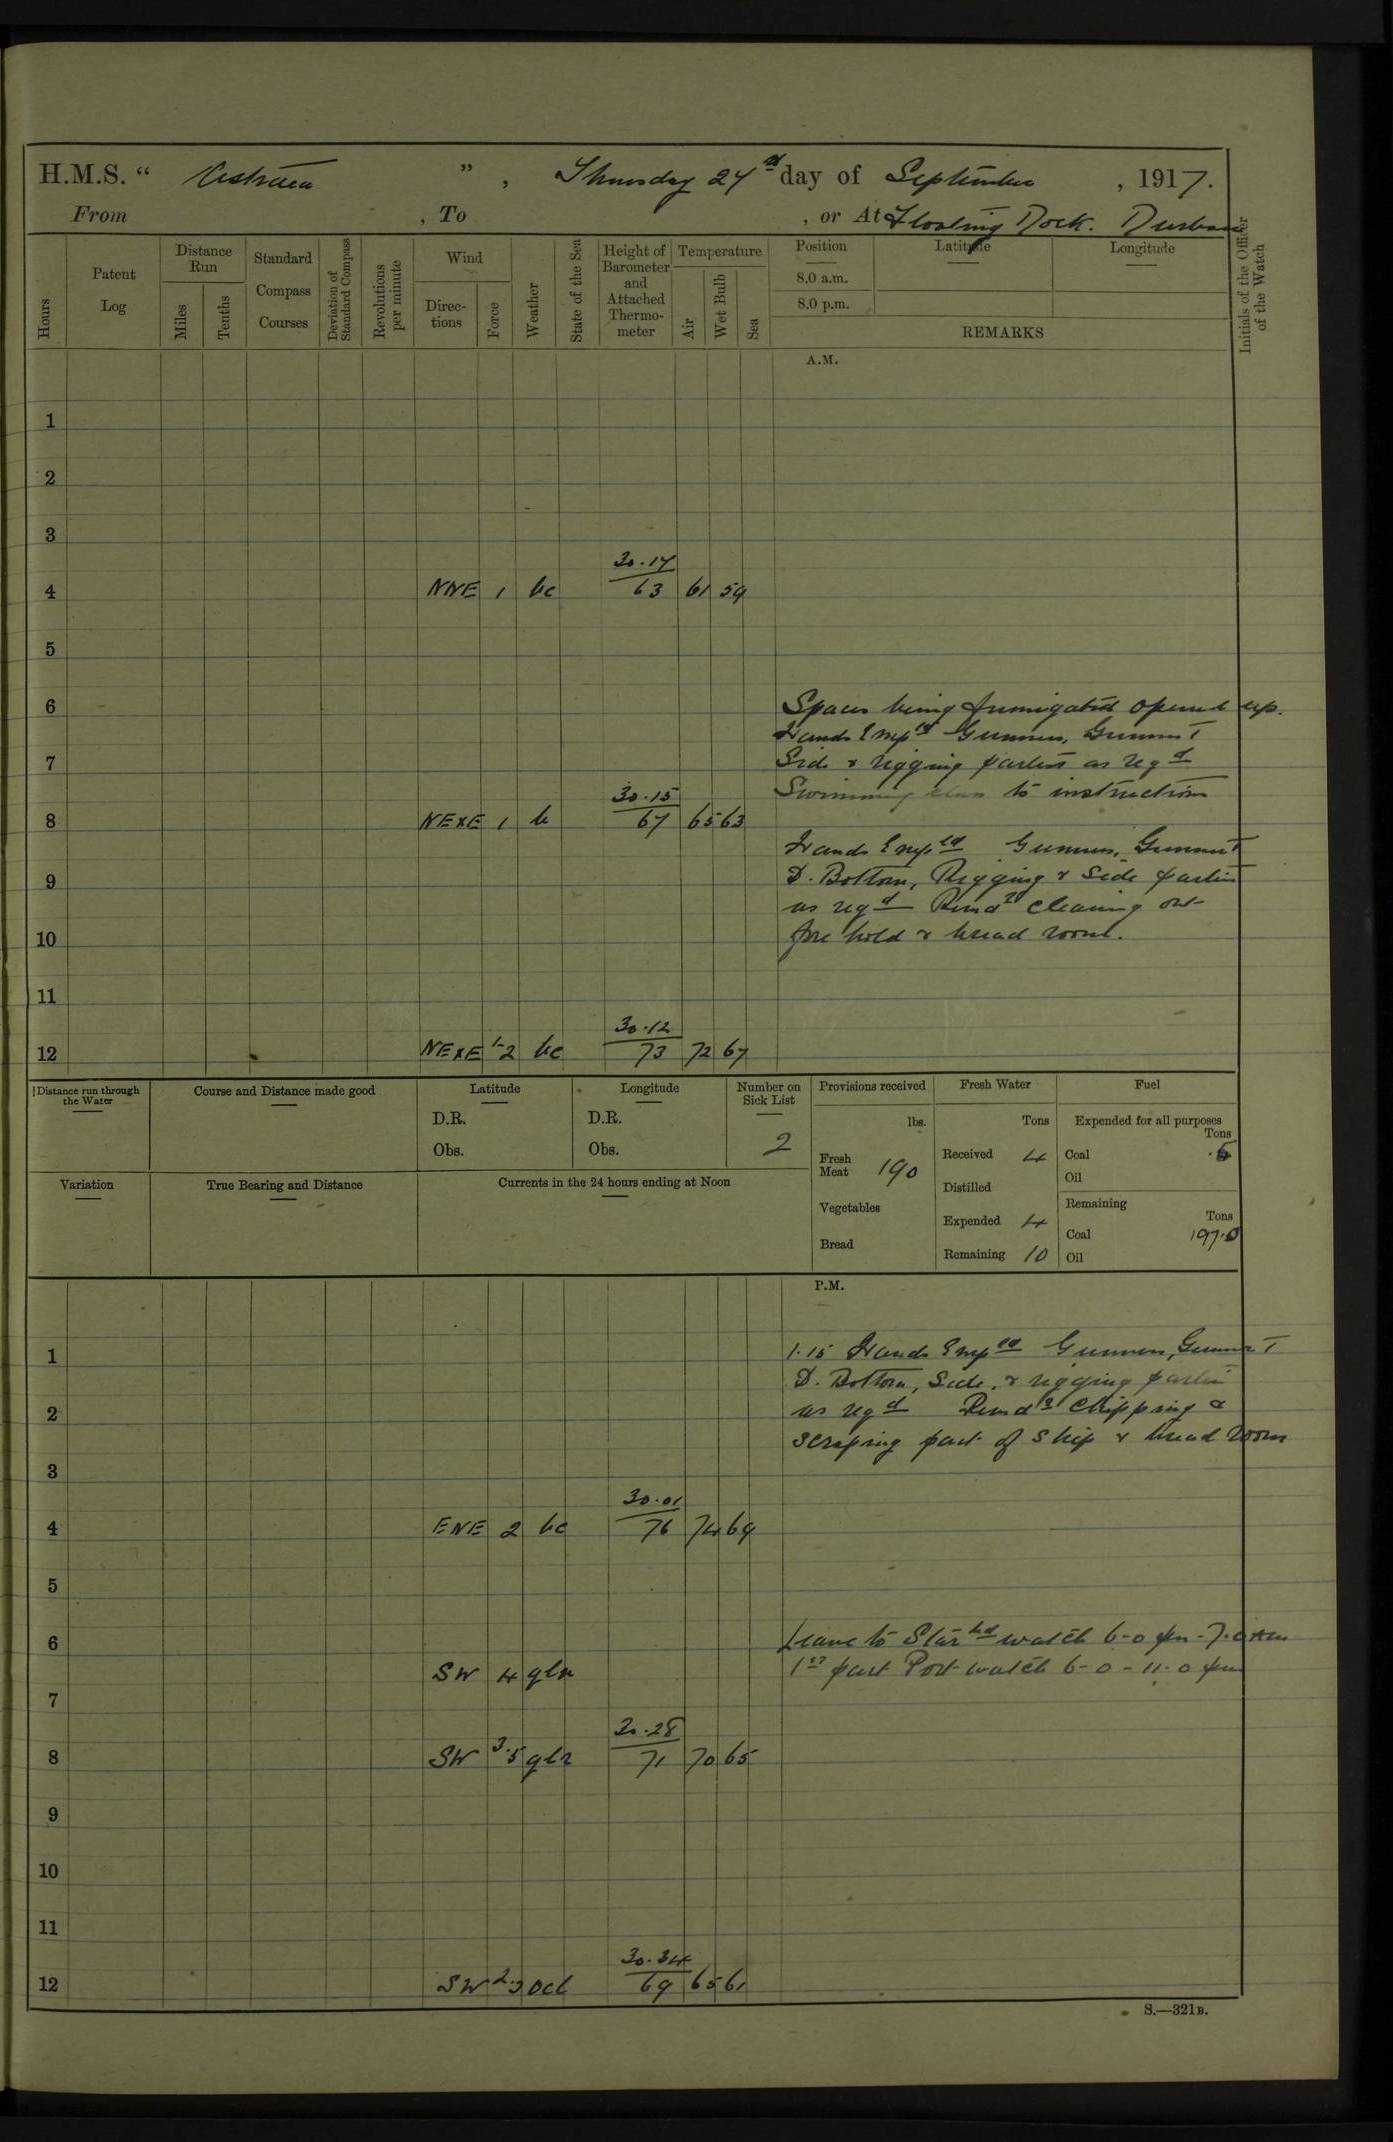 H.M.S. “ Astraea ” , Thursday 27th day of September , 1917.
From , To , or At Floating Dock. Durban
Hours
Patent Log
Distance Run
Miles
Tenths
Standard Compass Courses
Deviation of Standard Compass
Revolutions per minute
Wind
Directions
Force
Weather
State of the Sea
Height of Barometer and Attached Thermometer
Temperature
Air
Wet Bulb
Sea
Position
8.0 a.m.
8.0 p.m.
Latitude
Longitude
REMARKS
Initials of the Officer of the Watch
A.M.
1
2
3
4 NNE 1 bc 30.17 63 61 59
5
6 Spaces being fumigated opened up.
Hands Empd Gunners, Gunner T
7 Side & rigging parties as reqd
Swimming class to instruction
8 NExE 1 b 30.15 67 65 63
Hands Empd Gunners, Gunner T
9 D. Bottom, Rigging & Side parties
as reqd Remdr Cleaning out
10 fore hold & bread room.
11
12 NExE 1-2 bc 30.12 73 72 67
Distance run through the Water
Course and Distance made good
Latitude
D.R.
Obs.
Longitude
D.R.
Obs.
Number on Sick List
2
Provisions received
lbs.
Fresh Meat 190
Vegetables
Bread
Fresh Water
Tons
Received 4
Distilled
Expended 4
Remaining 10
Fuel
Expended for all purposes
Tons
Coal .5
Oil
Remaining
Tons
Coal 197.0
Oil
Variation
True Bearing and Distance
Currents in the 24 hours ending at Noon
P.M.
1 1.15 Hands Empd Gunners, Gunner T
D. Bottom, Side, & rigging parties
2 as reqd Remdr Chipping &
scraping part of Ship & bread room
3
4 ENE 2 bc 30.01 76 74 69
5
6 Leave to Starbd watch 6-0 pm - 7.0 am
SW 4 1st part Port watch 6-0 - 11.0 pm
7
8 SW 3.5 30.28 71 70 65
9
10
11
12 SW 2.3 30.34 69 65 61
S.—321B.